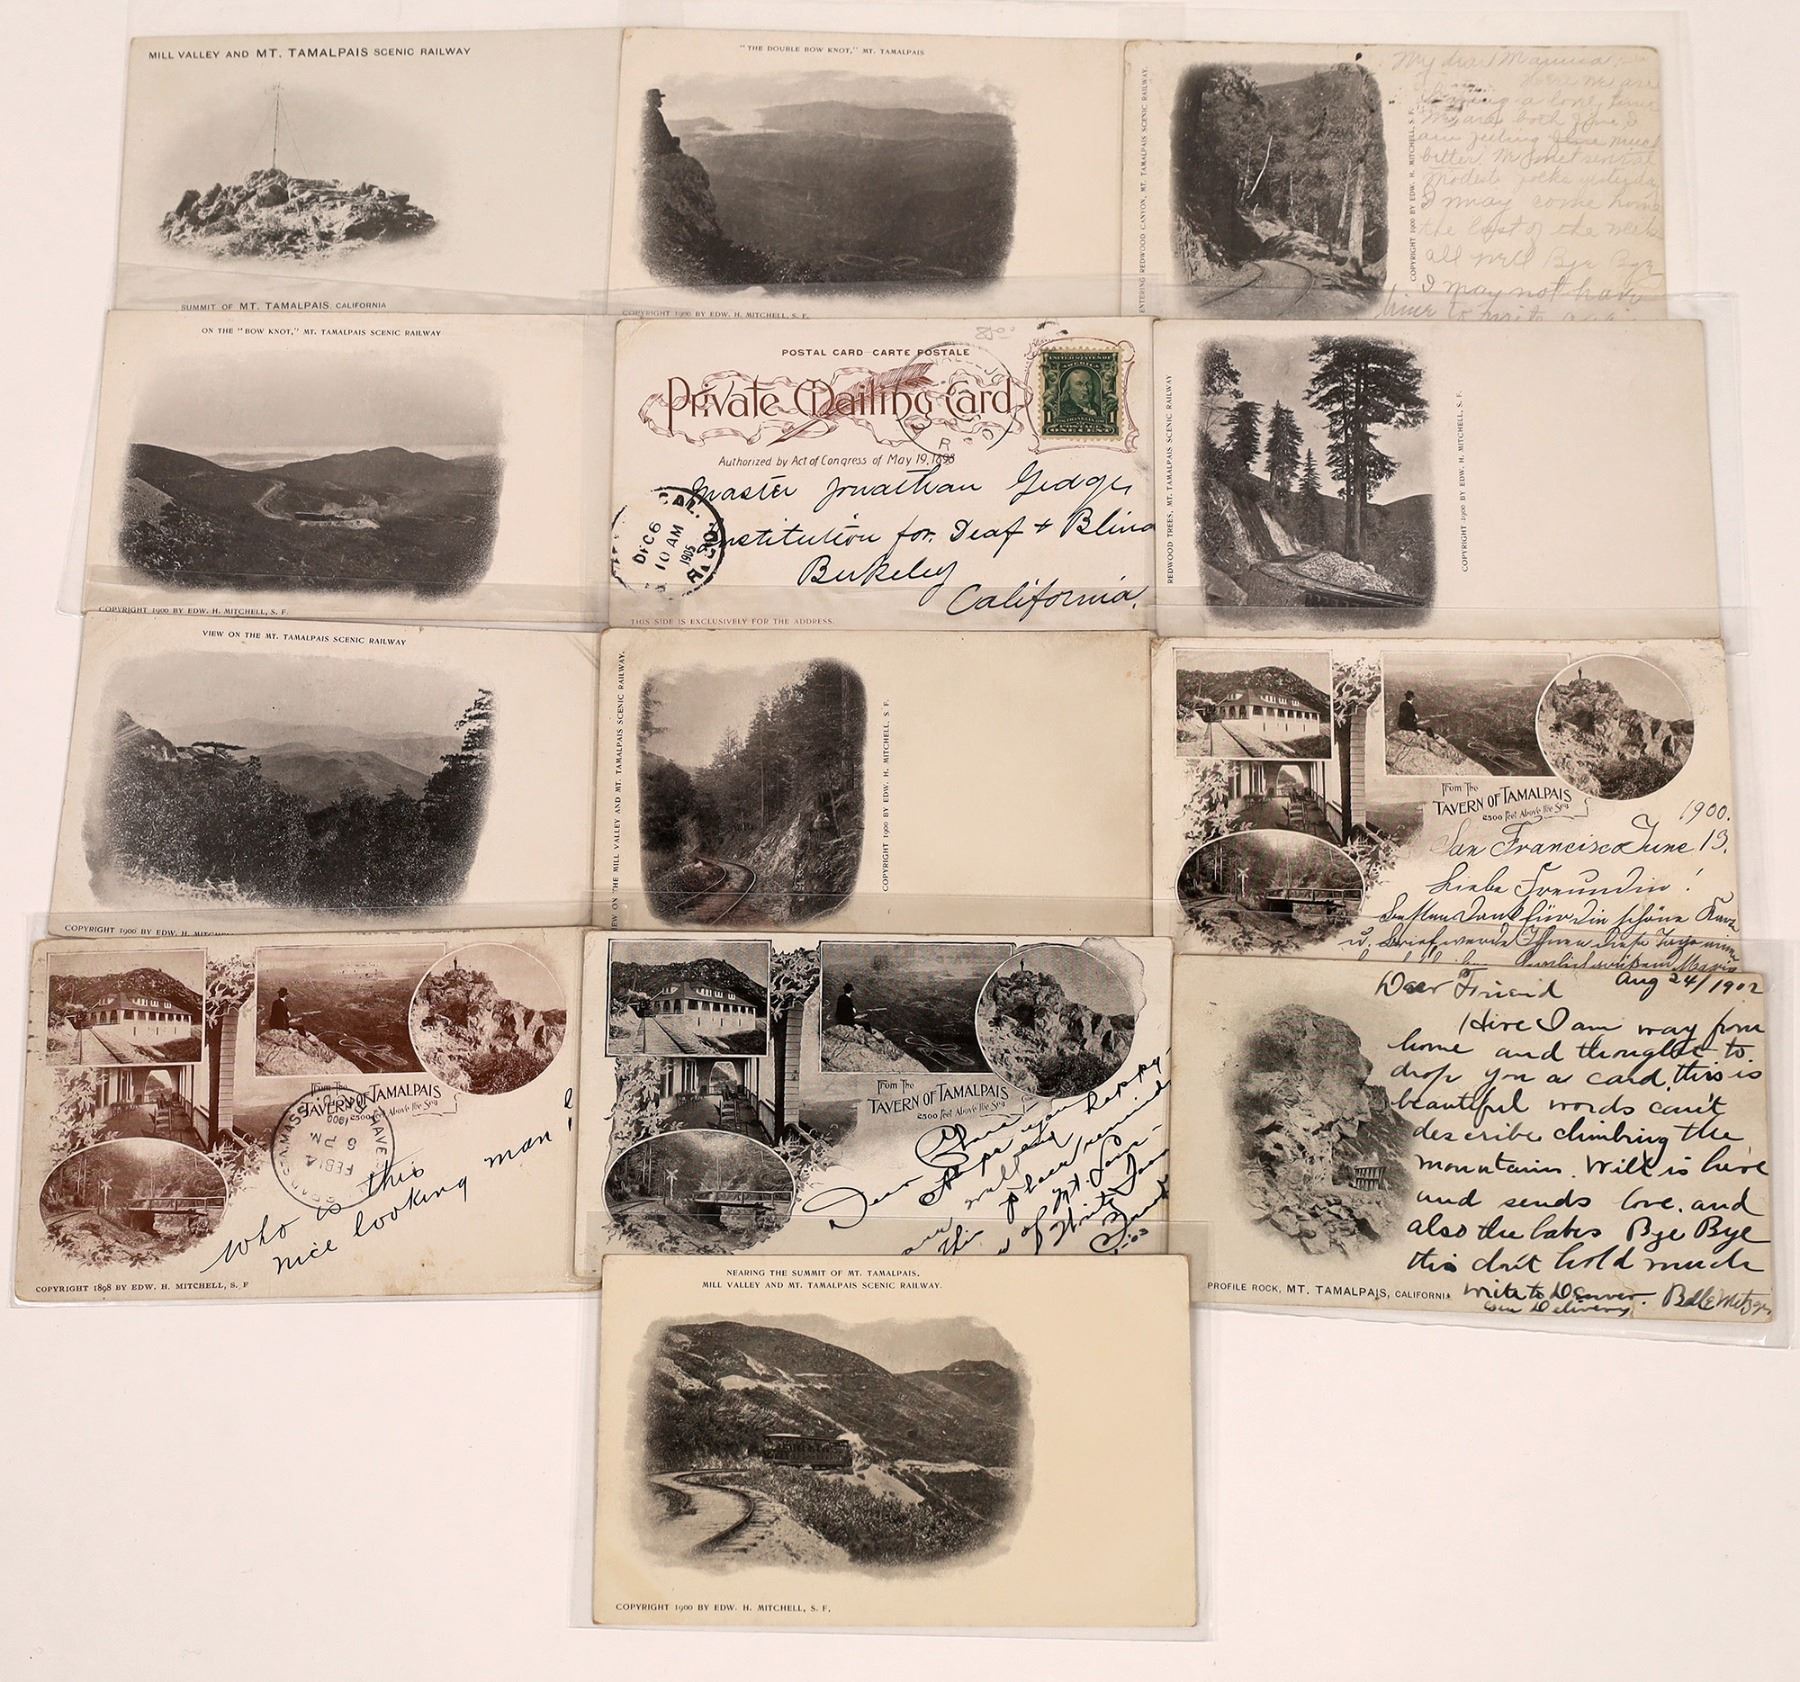 MILL VALLEY AND MT. TAMALPAIS SCENIC RAILWAY
SUMMIT OF MT. TAMALPAIS, CALIFORNIA
"THE DOUBLE BOW KNOT," MT. TAMALPAIS
COPYRIGHT 1900 BY EDW. H. MITCHELL, S. F.
ENTERING REDWOOD CANYON, MT. TAMALPAIS SCENIC RAILWAY.
COPYRIGHT 1900 BY EDW. H. MITCHELL, S. F.
My dear Mamma
a lovely time
We are both fine, I
am feeling much
better. We
yesterday
I may come home
the last of the week
all well Bye Bye
I may not have
time to write
ON THE "BOW KNOT," MT. TAMALPAIS SCENIC RAILWAY
COPYRIGHT 1900 BY EDW. H. MITCHELL, S. F.
POSTAL CARD-CARTE POSTALE
Private Mailing Card
Authorized by Act of Congress of May 19, 1898
UNITED STATES OF AMERICA
1
ONE CENT
CAL.
DEC 6
10 AM
1905
Master Jonathan Gedge,
Institution for Deaf & Blind
Berkeley
California.
THIS SIDE IS EXCLUSIVELY FOR THE ADDRESS.
REDWOOD TREES, MT. TAMALPAIS SCENIC RAILWAY
COPYRIGHT 1900 BY EDW. H. MITCHELL, S. F.
VIEW ON THE MT. TAMALPAIS SCENIC RAILWAY
COPYRIGHT 1900 BY EDW. H. MITCHELL
VIEW ON THE MILL VALLEY AND MT. TAMALPAIS SCENIC RAILWAY.
COPYRIGHT 1900 BY EDW. H. MITCHELL, S. F.
From The
TAVERN OF TAMALPAIS
2500 Feet Above the Sea
1900.
San Francisco June 13.
Liebe Freundin!
From The
TAVERN OF TAMALPAIS
2500 Feet Above the Sea
HAVERHILL
MASS.
FEB 14
6 PM
1900
who is this
nice looking man?
COPYRIGHT 1898 BY EDW. H. MITCHELL, S. F
From The
TAVERN OF TAMALPAIS
2500 Feet Above the Sea
Dear
you
are well and happy.
this place remind
of Mt.
Write Soon
Dear Friend Aug 24/1902
Here I am way from
home and thought to
drop you a card, this is
beautiful words can't
describe climbing the
mountain. Will is here
and sends love. and
also the babes Bye Bye
this don't hold much
write to Denver.
Gen Delivery. Belle
PROFILE ROCK, MT. TAMALPAIS, CALIFORNIA
NEARING THE SUMMIT OF MT. TAMALPAIS.
MILL VALLEY AND MT. TAMALPAIS SCENIC RAILWAY.
COPYRIGHT 1900 BY EDW. H. MITCHELL, S. F.